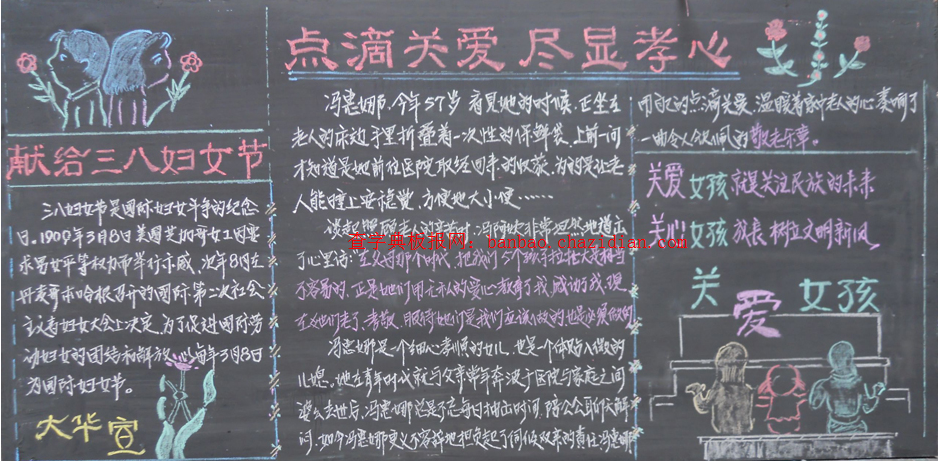 献给三八妇女节
三八妇女节是国际妇女斗争的纪念
日。1909年3月8日美国芝加哥女工因要
求男女平等权力而举行示威，次年8月在
丹麦哥本哈根召开的国际第二次社会
主义者妇女大会上决定，为了促进国际劳
动妇女的团结和解放，每年3月8日
为国际妇女节。
大华宣
点滴关爱 尽显孝心
冯惠娜，今年57岁 看见她的时候，正坐在
老人的床边手里折叠着一次性的保鲜袋，上前一问
才知道是她前往医院取经回来的收获，为的是让老
人能睡上安稳觉，方便地大小便……
谈起照顾 时，冯阿姨非常坦然地道出
了心里话：在父母那个时代，把我们5个孩子拉扯大是相当
不容易的，正是她们用无私的爱心教育了我，感动了我，现
在她们老了，孝敬、服侍她们是我们应该做的也是必要做的
冯惠娜是一个细心孝顺的女儿，也是一个体贴入微的
儿媳。她在青年时代就与父亲常年奔波于医院与家庭之间
婆么去世后，冯惠娜总是不忘每日抽出时间，陪公公聊天解
闷，如今冯惠娜更义不容辞地担负起了伺候双亲的责任 冯惠娜
用自己的点滴关爱，温暖着家中老人的心 奏响了
一曲令人钦佩的敬老乐章。
关爱女孩就是关注民族的未来
关心女孩成长 树立文明新风
关爱女孩
查字典板报网：banbao.chazidian.com